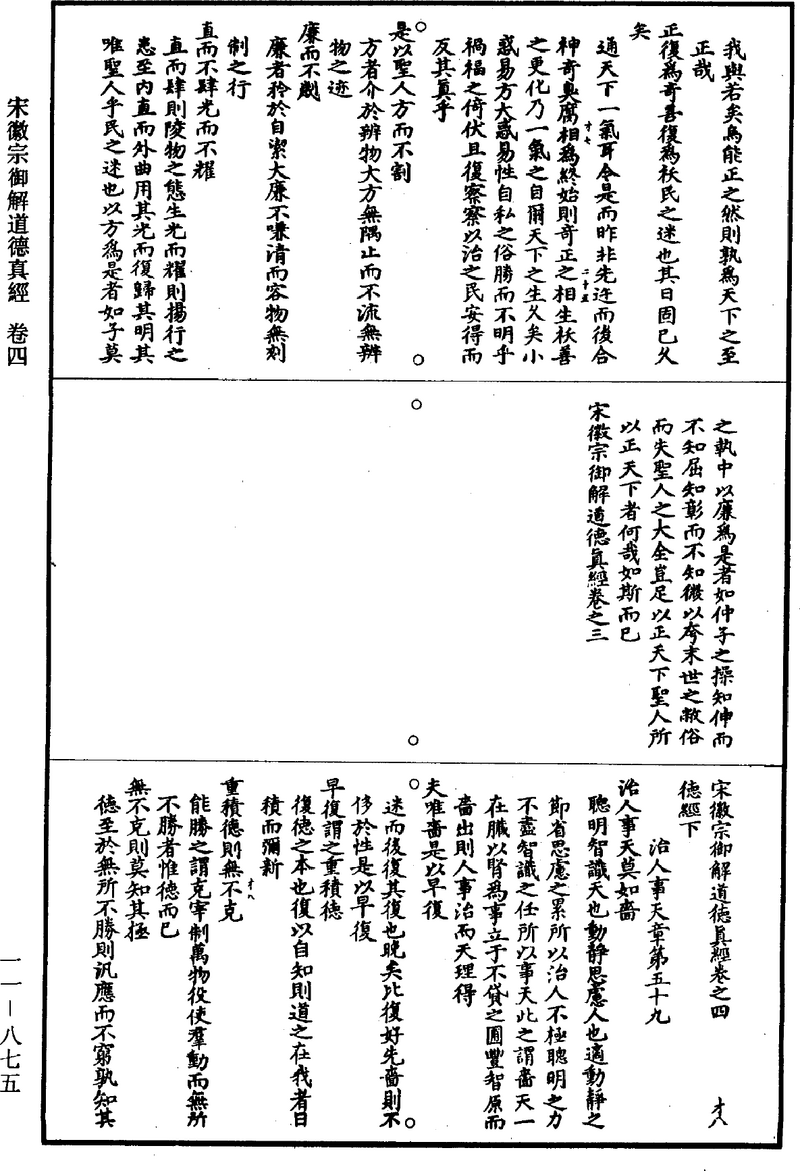 我與若矣烏能正之然則孰為天下之至
正哉
正復為奇善復為祅民之迷也其日固已久
矣
通天下一氣耳今是而昨非先迕而後合
神奇臭腐相為終始則奇正之相生祅善
之更化乃一氣之自爾天下之生久矣小
惑易方大惑易性自私之俗勝而不明乎
禍福之倚伏且復察察以治之民安得而
反其真乎
是以聖人方而不割
方者介於辨物大方無隅止而不流無辨
物之迹
廉而不劌
廉者矜於自潔大廉不嗛清而容物無刻
制之行
直而不肆光而不耀
直而肆則陵物之態生光而耀則揚行之
患至內直而外曲用其光而復歸其明其
唯聖人乎民之迷也以方為是者如子莫
之執中以廉為是者如仲子之操知伸而
不知屈知彰而不知微以夸末世之敝俗
而失聖人之大全豈足以正天下聖人所
以正天下者何哉如斯而已
宋徽宗御解道德真經卷之三
宋徽宗御解道德真經卷之四
才八
德經下
治人事天章第五十九
治人事天莫如嗇
聰明智識天也動靜思慮人也適動靜之
節省思慮之累所以治人不極聰明之力
不盡智識之任所以事天此之謂嗇天一
在臟以腎為事立于不貸之圃豐智原而
嗇出則人事治而天理得
夫唯嗇是以早復
迷而後復其復也晚矣比復好先嗇則不
侈於性是以早復
早復謂之重積德
復德之本也復以自知則道之在我者日
積而彌新
重積德則無不克
能勝之謂克宰制萬物役使羣動而無所
不勝者惟德而已
無不克則莫知其極
德至於無所不勝則汎應而不窮孰知其
才七
二十五
才八
宋徽宗御解道德真經 卷四
一一－八七五